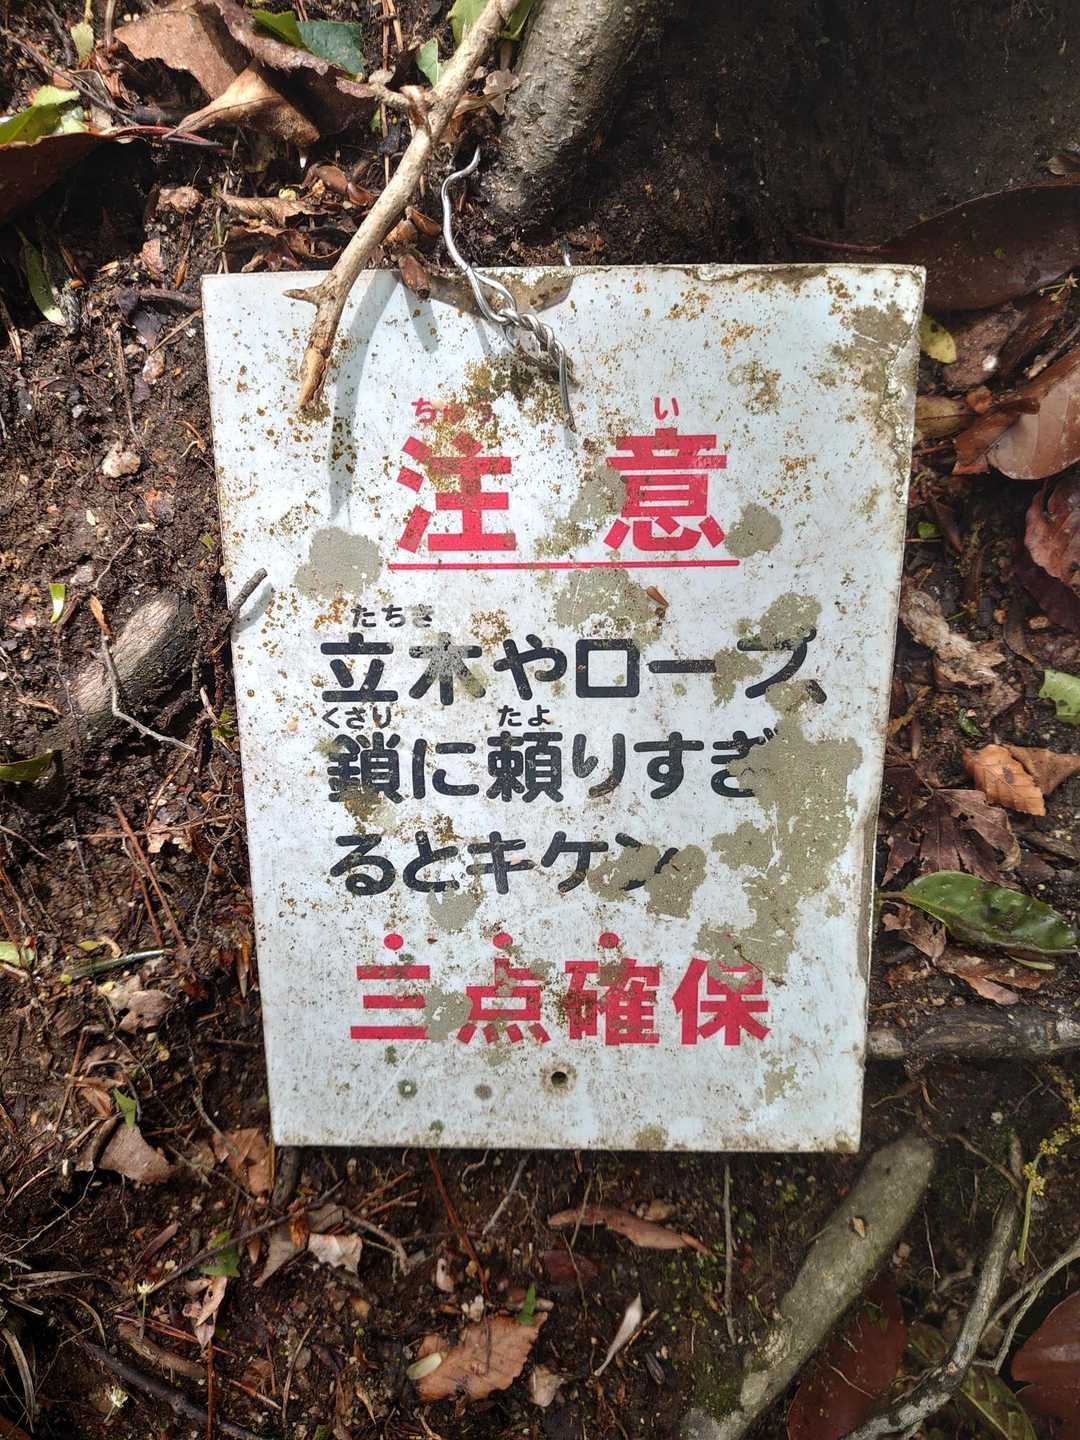 ちゅう い
注意
たちき
立木やロープ、
くさり たよ
鎖に頼りすぎ
るとキケン
三点確保